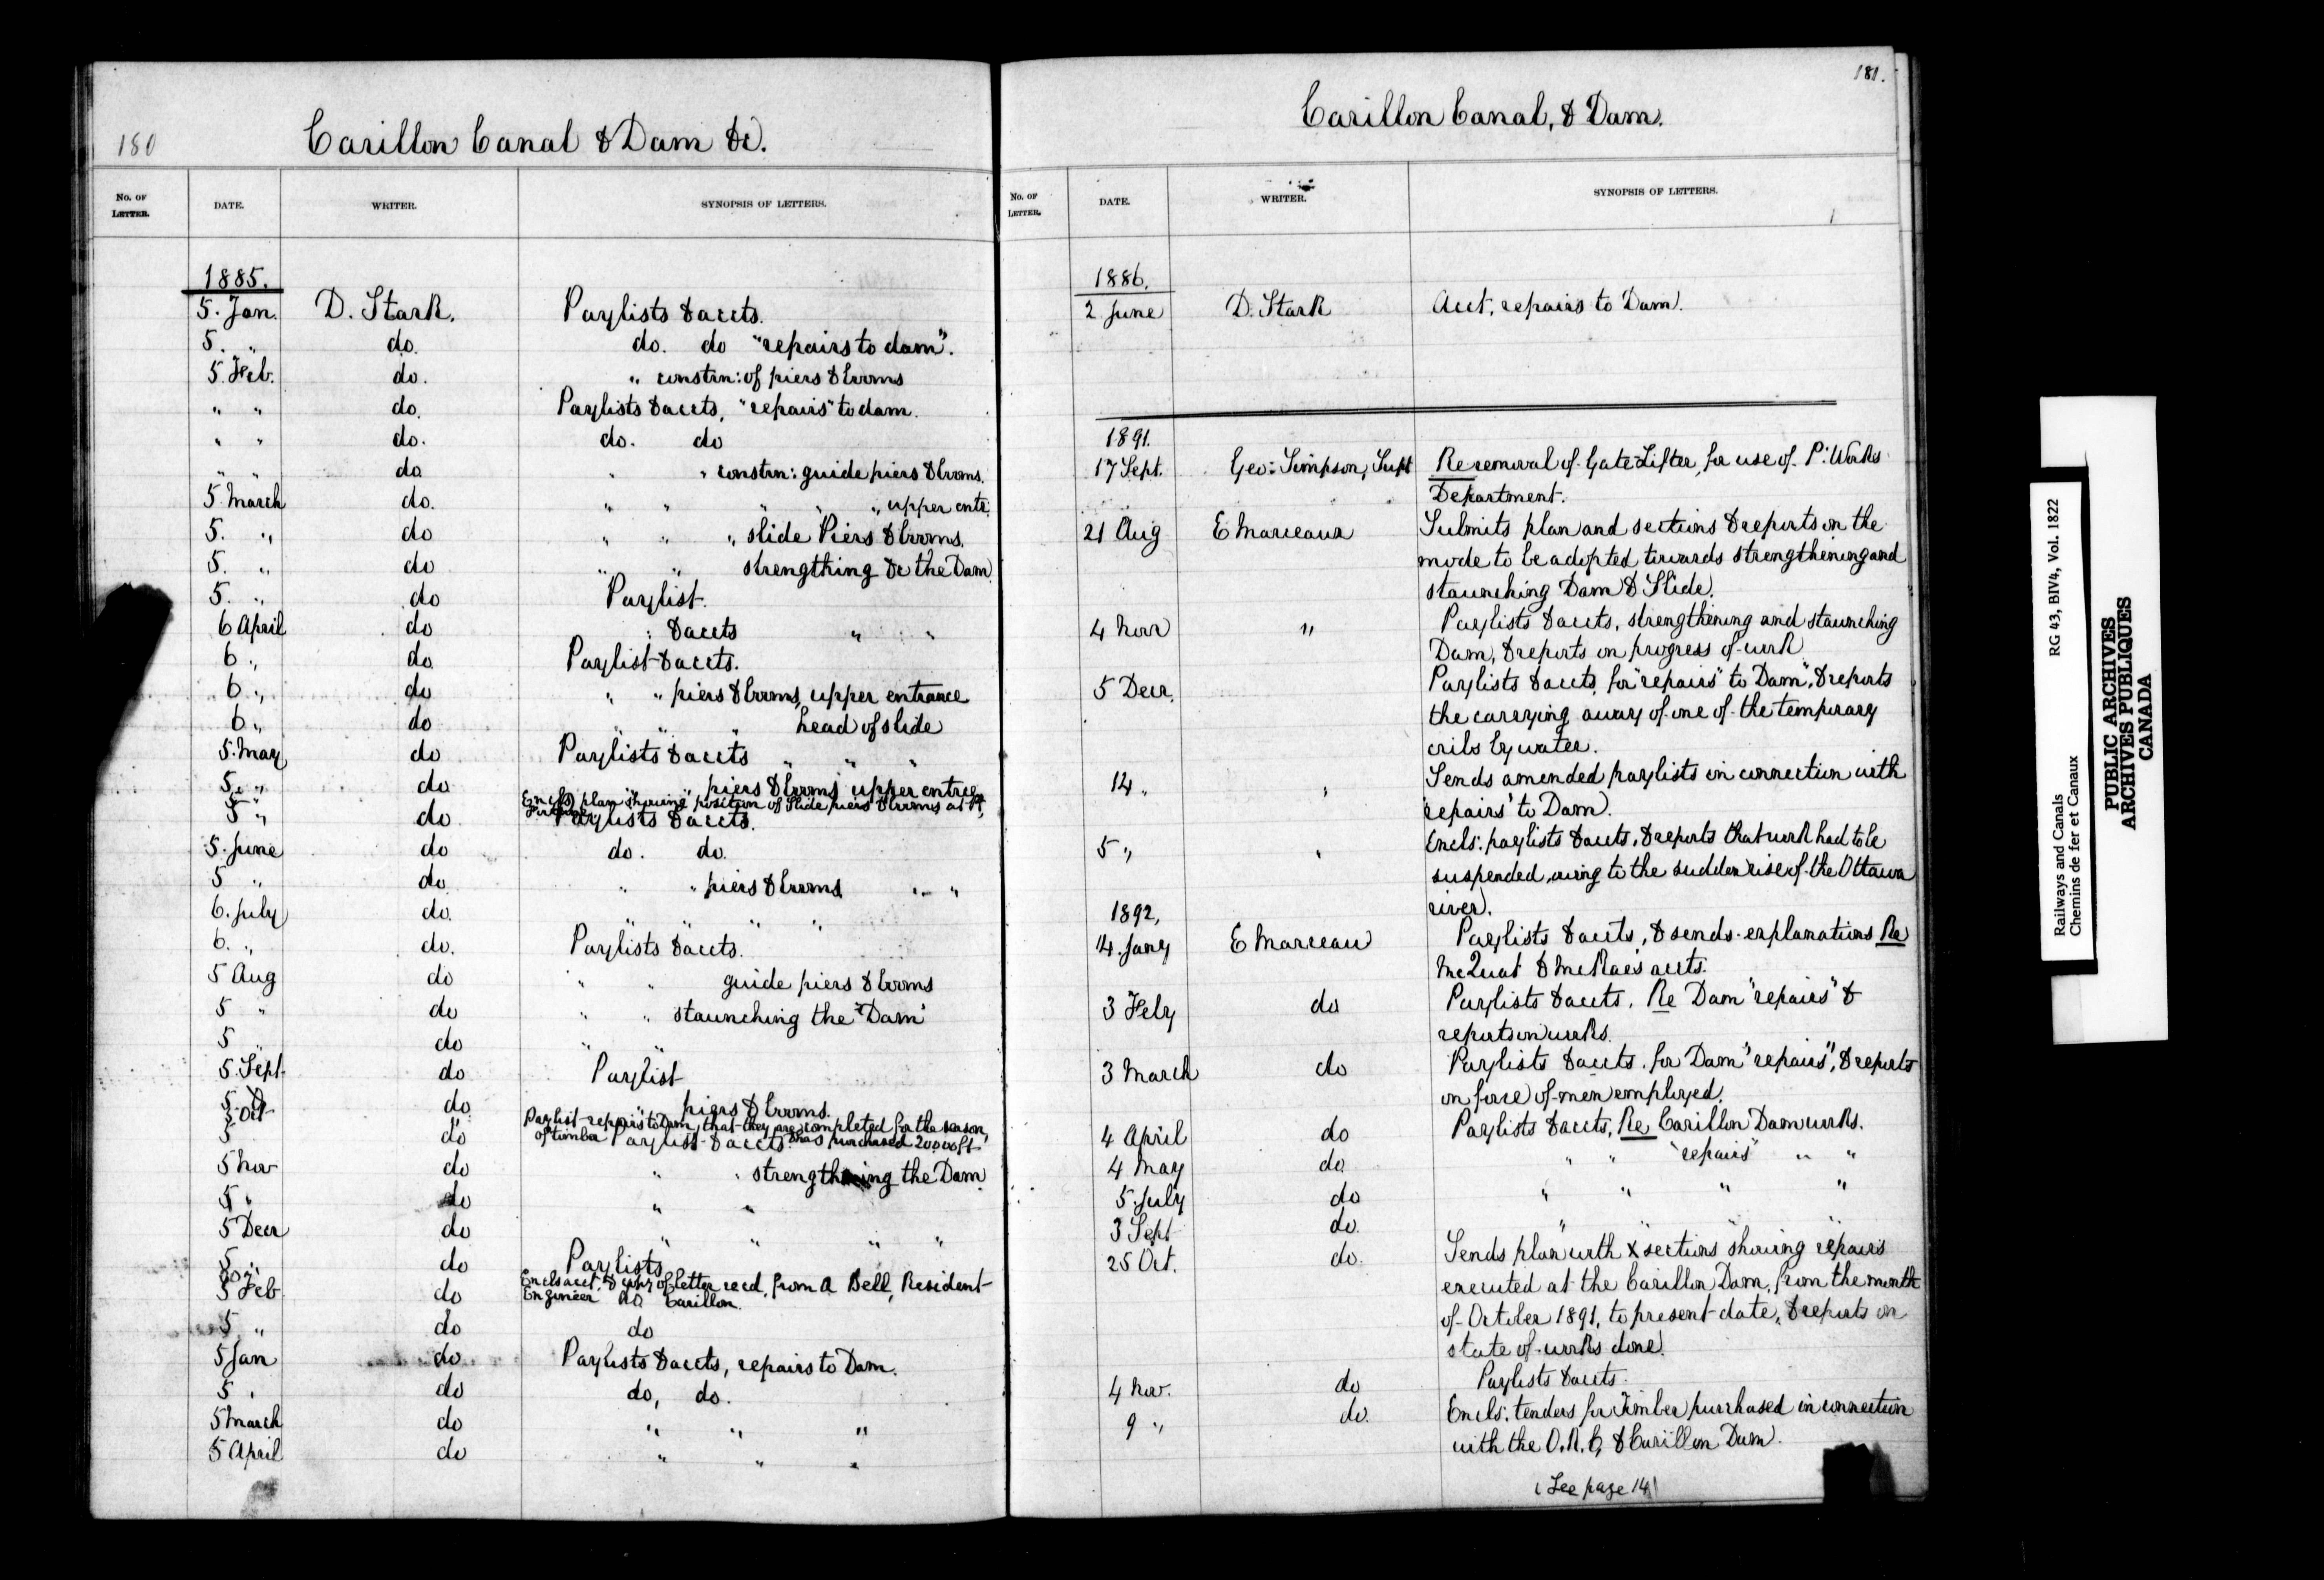 180
Carillon Canal & Dam &c.
No. of Letter. DATE. WRITER. SYNOPSIS OF LETTERS.
1885.
5. Jan. D. Stark. Paylists & accts.
5. " do. do. do "repairs to dam".
5. Feb. do. " constrn: of piers & booms
" " do. Paylists & accts, "repairs" to dam.
" " do. do. do
" " do " " constrn: guide piers & booms.
5 March do. " " " " " upper entr:
5. " do " " " slide Piers & booms.
5. " do " " strengthing &c the Dam
5. " do Paylist.
6 April do " & accts " "
6 " do Paylist & accts.
6 " do " " piers & booms, upper entrance
6 " do " " " head of slide
5. May do Paylists & accts " " "
5 " do " " piers & booms upper entrce
Encls) plan showing position of Slide piers & booms, at
5 " do Paylists & accts.
5. June do do. do.
5 " do " " piers & booms " "
6. July do. " " " "
6. " do. Paylists & accts.
5 Aug do " " guide piers & booms
5 " do " " staunching the "Dam"
5 " do " "
5. Sept do Paylist
5. " do " piers & booms.
Paylist repairs to Dam, that they are completed for the season,
5 Oct do Paylist & accts. & has purchased 20,000 ft
of timber
5 Nov do " " strengthening the Dam
5 " do " "
5 Decr do " " " "
5 " do Paylists
5 Feb do Encls acct. & copy of letter recd. from A Bell, Resident
Engineer Carillon.
5 " do do
5 Jan do Paylists & accts, repairs to Dam.
5 " do do, do.
5 March do " " "
5 April do " " "
181.
Carillon Canal, & Dam.
No. of Letter. DATE. WRITER. SYNOPSIS OF LETTERS.
1886.
2 June D. Stark Acct, repairs to Dam.
1891.
17 Sept. Geo: Simpson, Supt Re removal of Gate Lifter, for use of P: Works
Department.
21 Aug E Marceaux Submits plan and sections & reports on the
mode to be adopted towards strengthening and
staunching Dam & Slide.
4 Novr " Paylists & accts, strengthening and staunching
Dam, & reports on progress of work
5 Decr. Paylists & accts, for "repairs" to Dam, & reports
the carrying away of one of the temporary
cribs by water.
14 " " Sends amended paylists in connection with
"repairs" to Dam.
5 " " Encls: paylists & accts, & reports that work had to be
suspended, owing to the sudden rise of the Ottawa
river.
1892,
14. Jany E Marceau Paylists & accts, & sends explanations Re
McQuat & McRae's accts.
3 Feby do Paylists & accts. Re Dam "repairs" &
reports on works.
3 March do Paylists & accts. for Dam "repairs", & reports
on force of men employed.
4 April do Paylists & accts, Re Carillon Dam works.
4 May do. " " "repairs" " "
5 July do " " " "
3 Sept do. " " " "
25 Oct. do. Sends plan with X sections showing repairs
executed at the Carillon Dam, from the month
of October 1891, to present date, & reports on
state of works done.
4 Nov. do Paylists & accts.
9 " do. Encls: tenders for Timber purchased in connection
with the O. R. C, & Carillon Dam.
(See page 14)
Railways and Canals
Chemins de fer et Canaux
RG 43, BIV4, Vol. 1822
PUBLIC ARCHIVES
ARCHIVES PUBLIQUES
CANADA